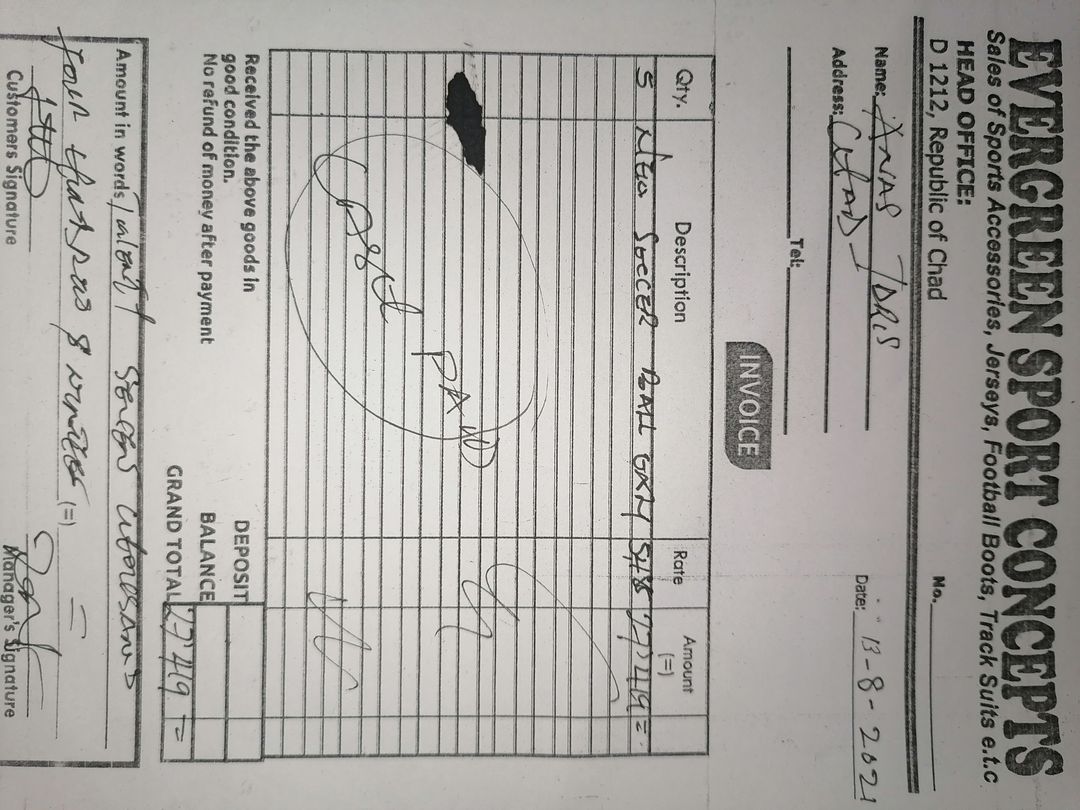 EVERGREEN SPORT CONCEPTS
Sales of Sports Accessories, Jerseys, Football Boots, Track Suits e.t.c
HEAD OFFICE:
D 1212, Republic of Chad
No.
Name: ANAS IDRIS
Date: 13-8-2021
Address: CHAD
Tel:
INVOICE
Qty. Description Rate Amount
(=)
5 NEO SOCCER BALL 27419=
PAID
Received the above goods in
good condition.
No refund of money after payment
DEPOSIT
BALANCE
GRAND TOTAL 27419 =
Amount in words
Four hundred &
(=)
Customers Signature
Manager's Signature